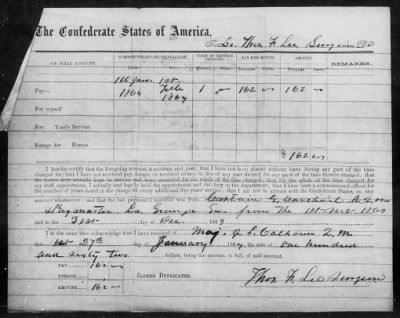 The Confederate States of America,
To Lee. Thos. F. Lee Surgeon Dr.
ON WHAT ACCOUNT.
COMMENCEMENT AND EXPIRATION.
TERM OF SERVICE CHARGED.
PAY PER MONTH
AMOUNT.
REMARKS.
1st Jany 1st
Pay— 1864 Feby 1864 1 162 162
For myself
For Years Service
Forage for Horses
$162
I hereby certify that the foregoing account is accurate and just; that I have not been absent without leave during any part of the time
charged for; that I have not received pay, forage, or received money in lieu of any part thereof, for any part of the time therein charged; that the
horses were actually kept in service and were mustered for the whole of the time charged; that for the whole of the time charged for
my staff appointment, I actually and legally held the appointment and did duty in the department; that I have been a commissioned officer for
the number of years stated in the charge for every additional five years' service; that I am not in arrears with the Confederate States, on any
account whatsoever; and that the last payment I received was from Captain
Paymaster from the 1st Nov. 1863
and to the 31st day of Dec 1863
I at the same time acknowledge that I have received of Maj. J. S. Calhoun Q.M.
this 27th day of January 1864, the sum of one hundred
and sixty two dollars, being the amount, in full, of said account.
PAY 162
FORAGE
AMOUNT, 162
SIGNED DUPLICATES.
Thos. F. Lee Surgeon